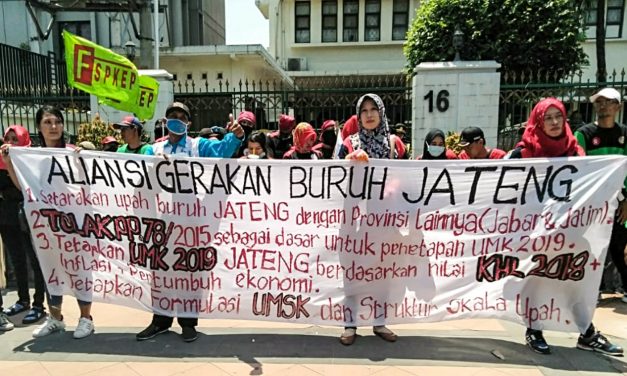 F SPKEP
EP
16
ALIANSI GERAKAN BURUH JATENG
1. Setarakan upah buruh JATENG dengan Provinsi Lainnya (Jabar & Jatim).
2. TOLAK PP 78/2015 sebagai dasar untuk penetapan UMK 2019.
3. Tetapkan UMK 2019 JATENG berdasarkan nilai KHL 2018 +
Inflasi + Pertumbuh ekonomi.
4. Tetapkan Formulasi UMSK dan Struktur skala Upah.